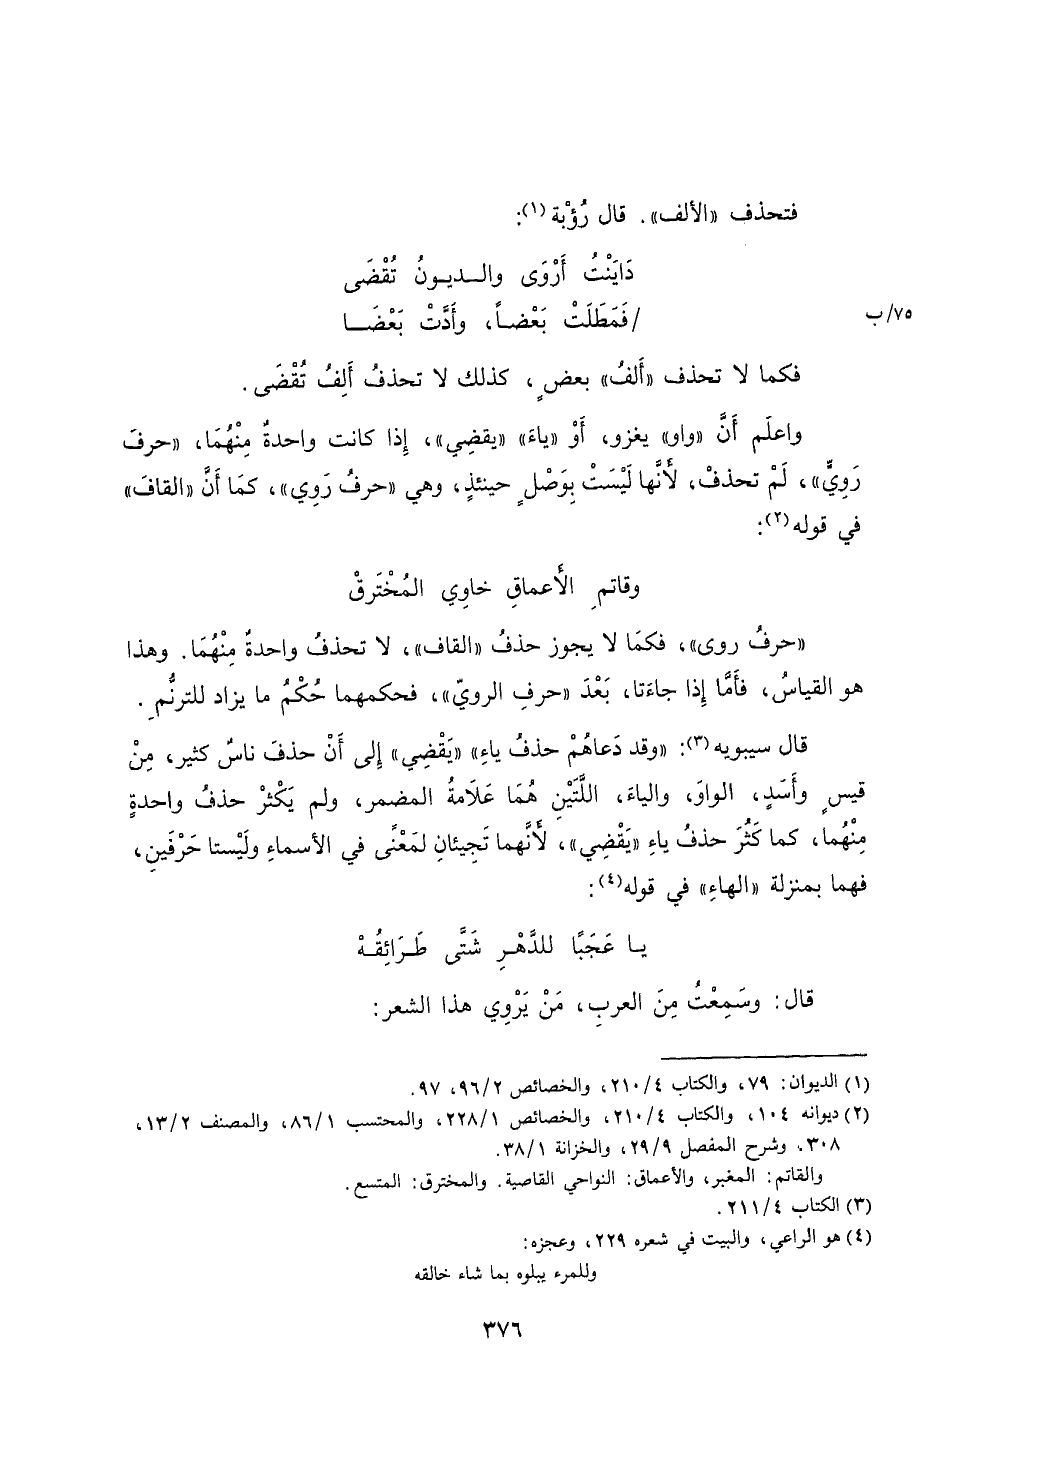 فتحذف «الألف». قال رُؤْبة(١):
دَايَنْتُ أَرْوَى والــديــونُ تُقْضَى
٧٥/ب
/فَمَطَلَتْ بَعْضــاً، وأَدَّتْ بَعْضَــا
فكما لا تحذف «أَلفُ» بعضٍ، كذلك لا تحذفُ أَلِفُ تُقْضَى.
واعلَم أَنَّ «واو» يغزو، أَوْ «ياءَ» «يقضِي»، إِذا كانت واحدةٌ مِنْهُمَا، «حرفَ
رَوِيٍّ»، لَمْ تحذفْ، لأَنَّها لَيْسَتْ بِوَصْلٍ حينئذٍ، وهي «حرفُ رَوِي»، كمَا أَنَّ «القافَ»
في قوله(٢):
وقاتمِ الأَعماقِ خاوِي المُخْتَرَقْ
«حرفُ روى»، فكمَا لا يجوز حذفُ «القاف»، لا تحذفُ واحدةٌ مِنْهُمَا. وهذا
هو القياسُ، فأَمَّا إِذا جاءَتا، بَعْدَ «حرفِ الرويّ»، فحكمهما حُكْمُ ما يزاد للترنُّمِ.
قال سيبويه(٣): «وقد دَعاهُمْ حذفُ ياءِ» «يَقْضِي» إِلى أَنْ حذفَ ناسٌ كثير، مِنْ
قيسٍ وأَسَدٍ، الواوَ، والياءَ، اللَّتَيْنِ هُمَا عَلَامةُ المضمر، ولم يَكْثرْ حذفُ واحدةٍ
مِنْهُما، كما كَثُرَ حذفُ ياءِ «يَقْضِي»، لأَنَّهما تَجِيئانِ لمَعْنًى في الأسماءِ ولَيْستا حَرْفَينِ،
فهما بمنزلة «الهاءِ» في قوله(٤):
يــا عَجَبًا للدَّهْــرِ شَتَّى طَــرَائِقُــهْ
قال: وسَمِعْتُ مِنَ العربِ، مَنْ يَرْوِي هذا الشعر:
(١) الديوان: ٧٩، والكتاب ٢١٠/٤، والخصائص ٩٦/٢، ٩٧.
(٢) ديوانه ١٠٤، والكتاب ٢١٠/٤، والخصائص ٢٢٨/١، والمحتسب ٨٦/١، والمصنف ١٣/٢،
٣٠٨، وشرح المفصل ٢٩/٩، والخزانة ٣٨/١.
والقاتم: المغبر، والأعماق: النواحي القاصية. والمخترق: المتسع.
(٣) الكتاب ٢١١/٤.
(٤) هو الراعي، والبيت في شعره ٢٢٩، وعجزه:
وللمرء يبلوه بما شاء خالقه
٣٧٦